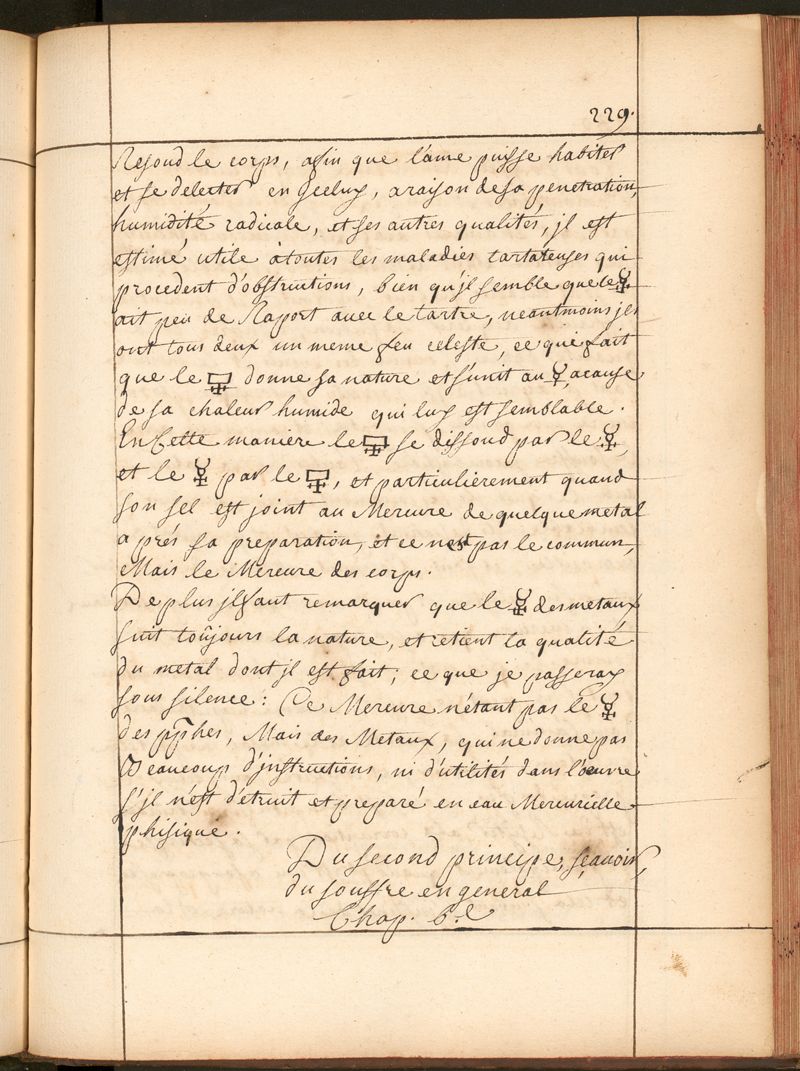 229.
Resoud le corps, afin que l'ame puisse habiter
et se delecter en Jceluy, a raison de sa penetration,
humidité radicale, et ses autres qualités, jl est
estimé utile à toutes les maladies tartareuses qui
procedent d'obstructions, bien qu'jl semble que le ☿
ait peu de Raport avec le tartre, neantmoins jls
ont tous deux un meme feu celeste, ce qui fait
que le 🜿 donne sa nature et s'unit au ☿, acause
de sa chaleur humide qui luy est semblable.
En Cette maniere le 🜿 se dissoud par le ☿,
et le ☿ par le 🜿, et particulierement quand
son sel est joint au Mercure de quelque metal
a prés sa preparation, et ce n'est pas le commun,
Mais le Mercure des corps.
De plus jl faut remarquer que le ☿ des metaux
suit toûjours la nature, et retient la qualité
du metal dont jl est fait; ce que je passeray
sous silence: Ce Mercure n'étant pas le ☿
des pphes, Mais des Metaux, qui ne donne pas
Beaucoup d'jnstructions, ni d'utilités dans l'œuvre
s'jl n'est d'etruit et preparé en eau Mercurielle
phisique.
Du second principe, sçauoir,
du souffre en general
Chap. 6.e